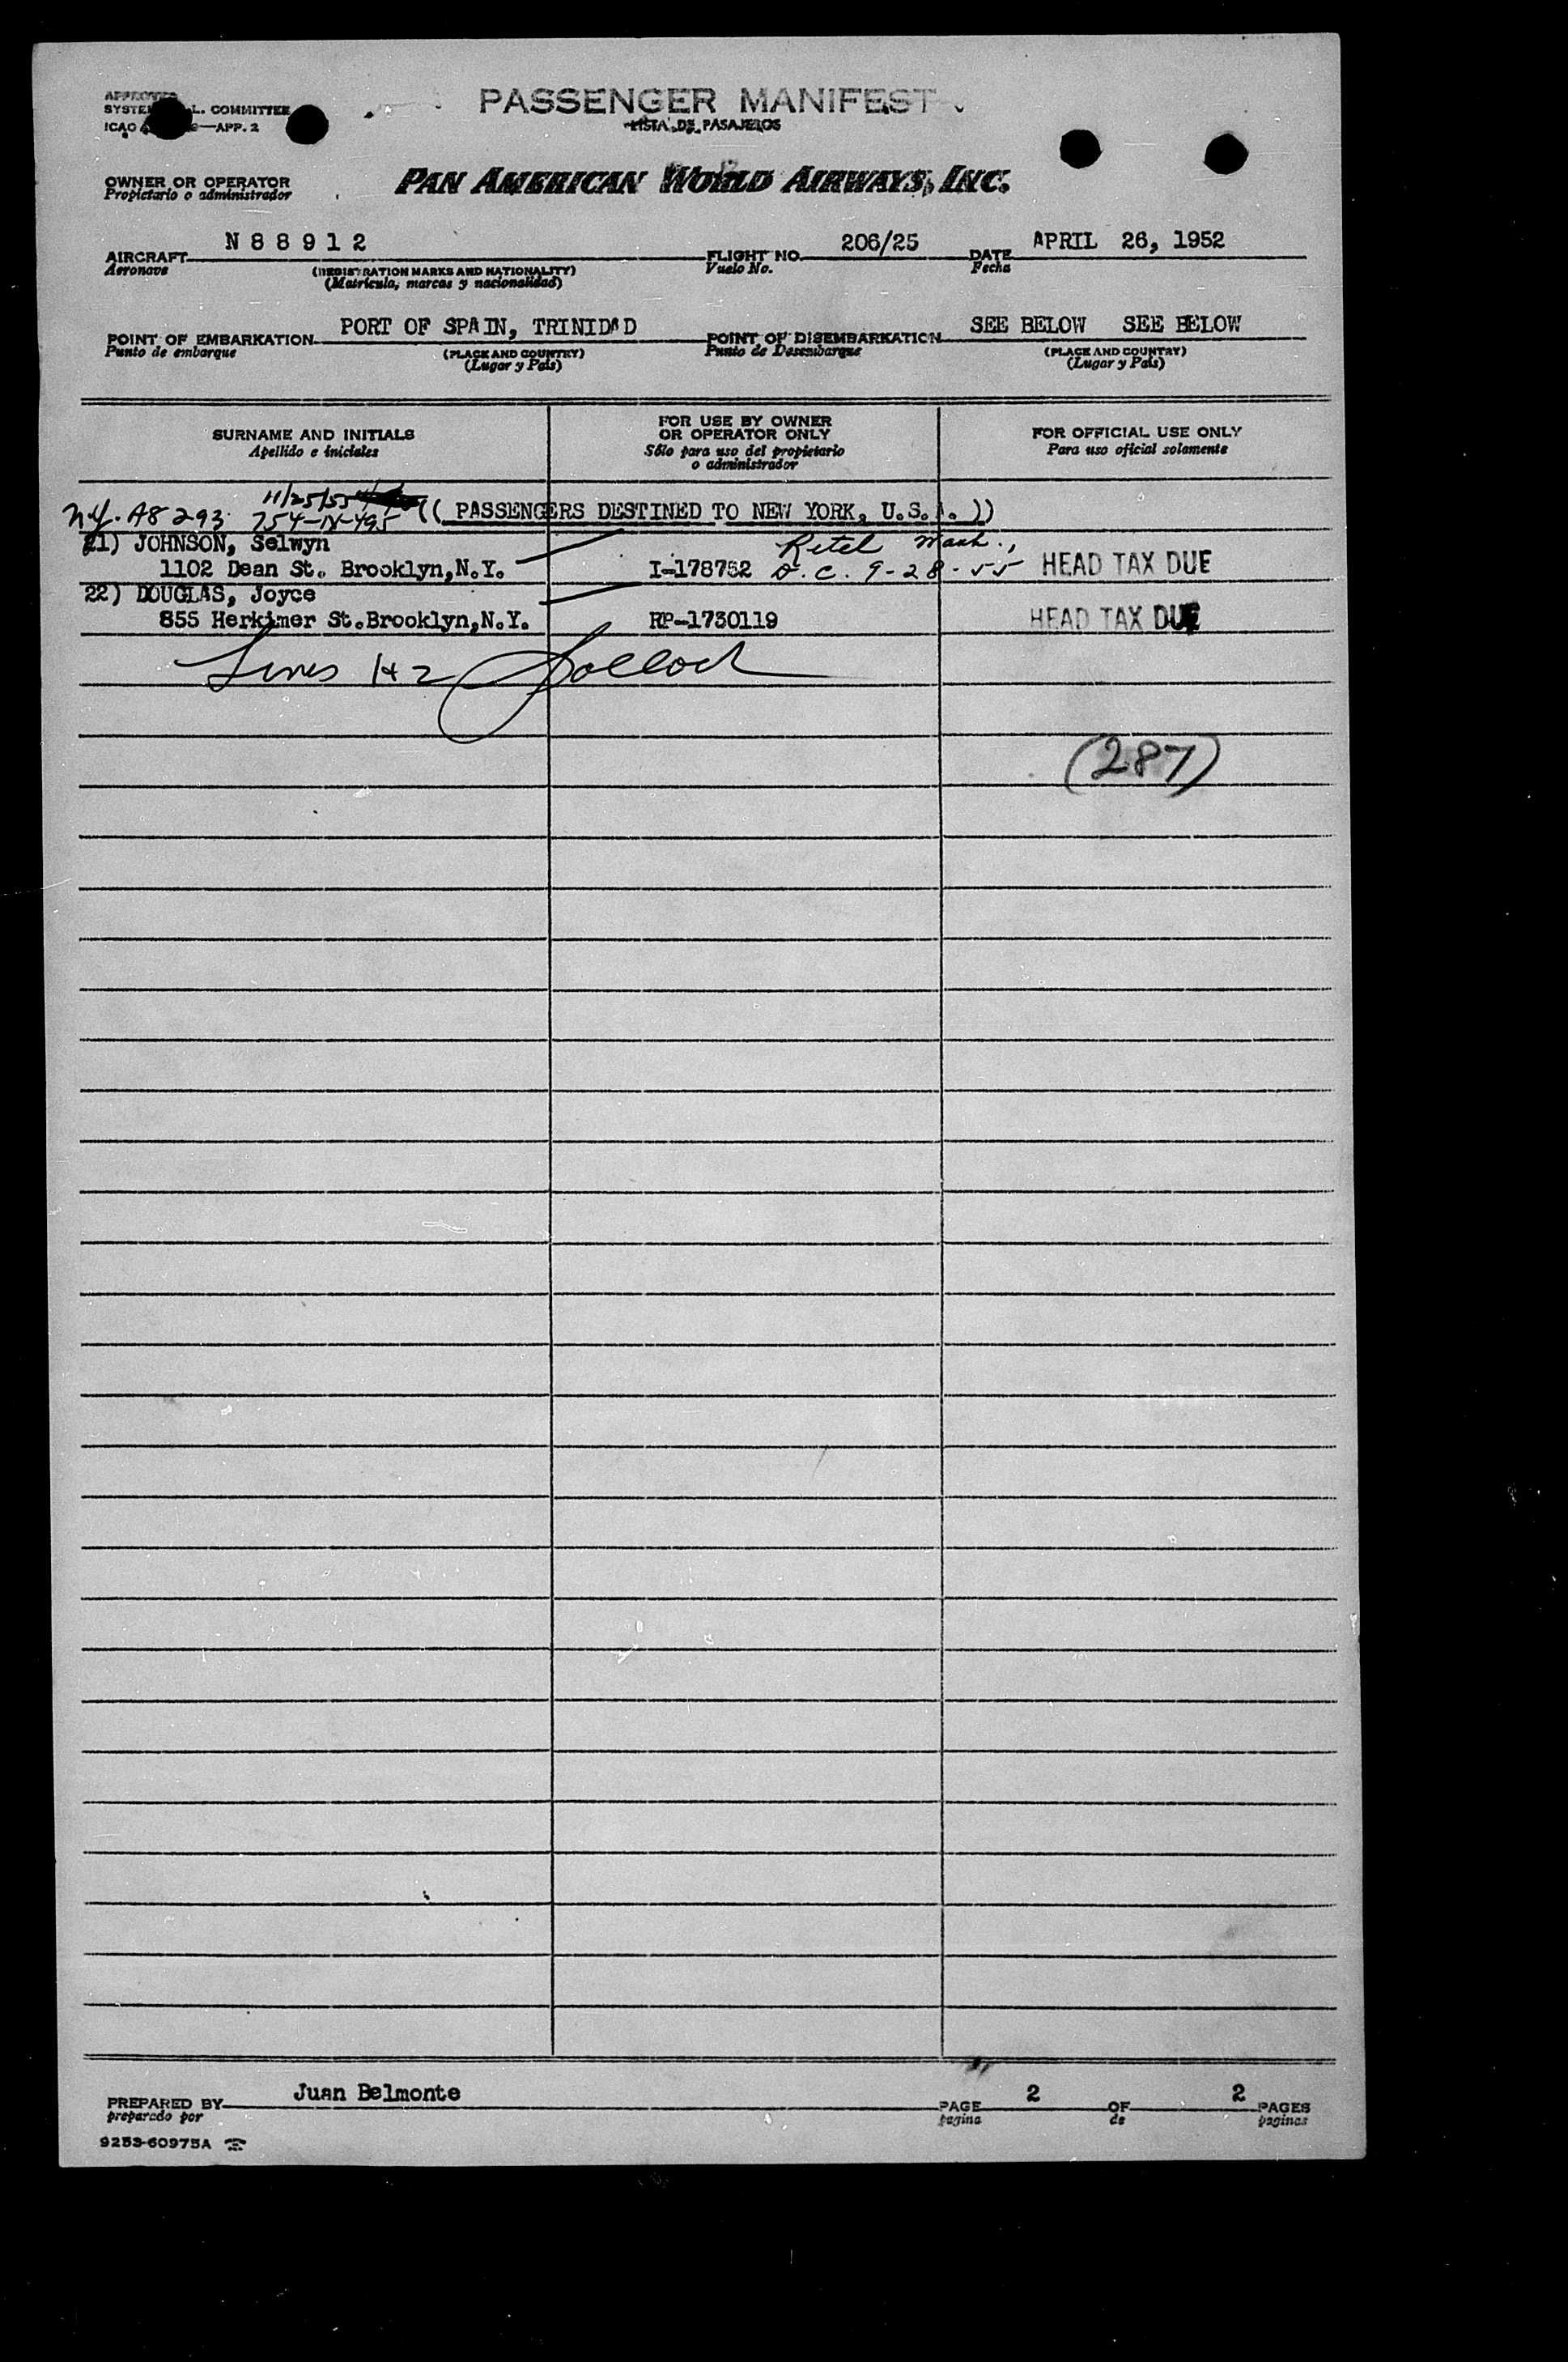 APPROVED
SYSTE L. COMMITTEE
ICAO —APP. 2
PASSENGER MANIFEST
LISTA DE PASAJEROS
OWNER OR OPERATOR
Propietario o administrador
PAN AMERICAN WORLD AIRWAYS, INC.
AIRCRAFT N 8 8 9 1 2 FLIGHT NO. 206/25 DATE APRIL 26, 1952
Aeronave (REGISTRATION MARKS AND NATIONALITY) Vuelo No. Fecha
(Matrícula, marcas y nacionalidad)
POINT OF EMBARKATION PORT OF SPAIN, TRINIDAD POINT OF DISEMBARKATION SEE BELOW SEE BELOW
Punto de embarque (PLACE AND COUNTRY) Punto de Desembarque (PLACE AND COUNTRY)
(Lugar y País) (Lugar y País)
SURNAME AND INITIALS FOR USE BY OWNER OR OPERATOR ONLY FOR OFFICIAL USE ONLY
Apellido e iniciales Sólo para uso del propietario o administrador Para uso oficial solamente
11/25/55
N.Y. A8 293 754-N-495 (( PASSENGERS DESTINED TO NEW YORK, U.S.A. ))
21) JOHNSON, Selwyn Retel Wash.,
1102 Dean St. Brooklyn,N.Y. I-178752 D.C. 9-28-55 HEAD TAX DUE
22) DOUGLAS, Joyce
855 Herkimer St.Brooklyn,N.Y. RP-1730119 HEAD TAX DUE
Lines 1+2
(287)
PREPARED BY Juan Belmonte PAGE 2 OF 2 PAGES
preparado por pagina de paginas
9253-60975A